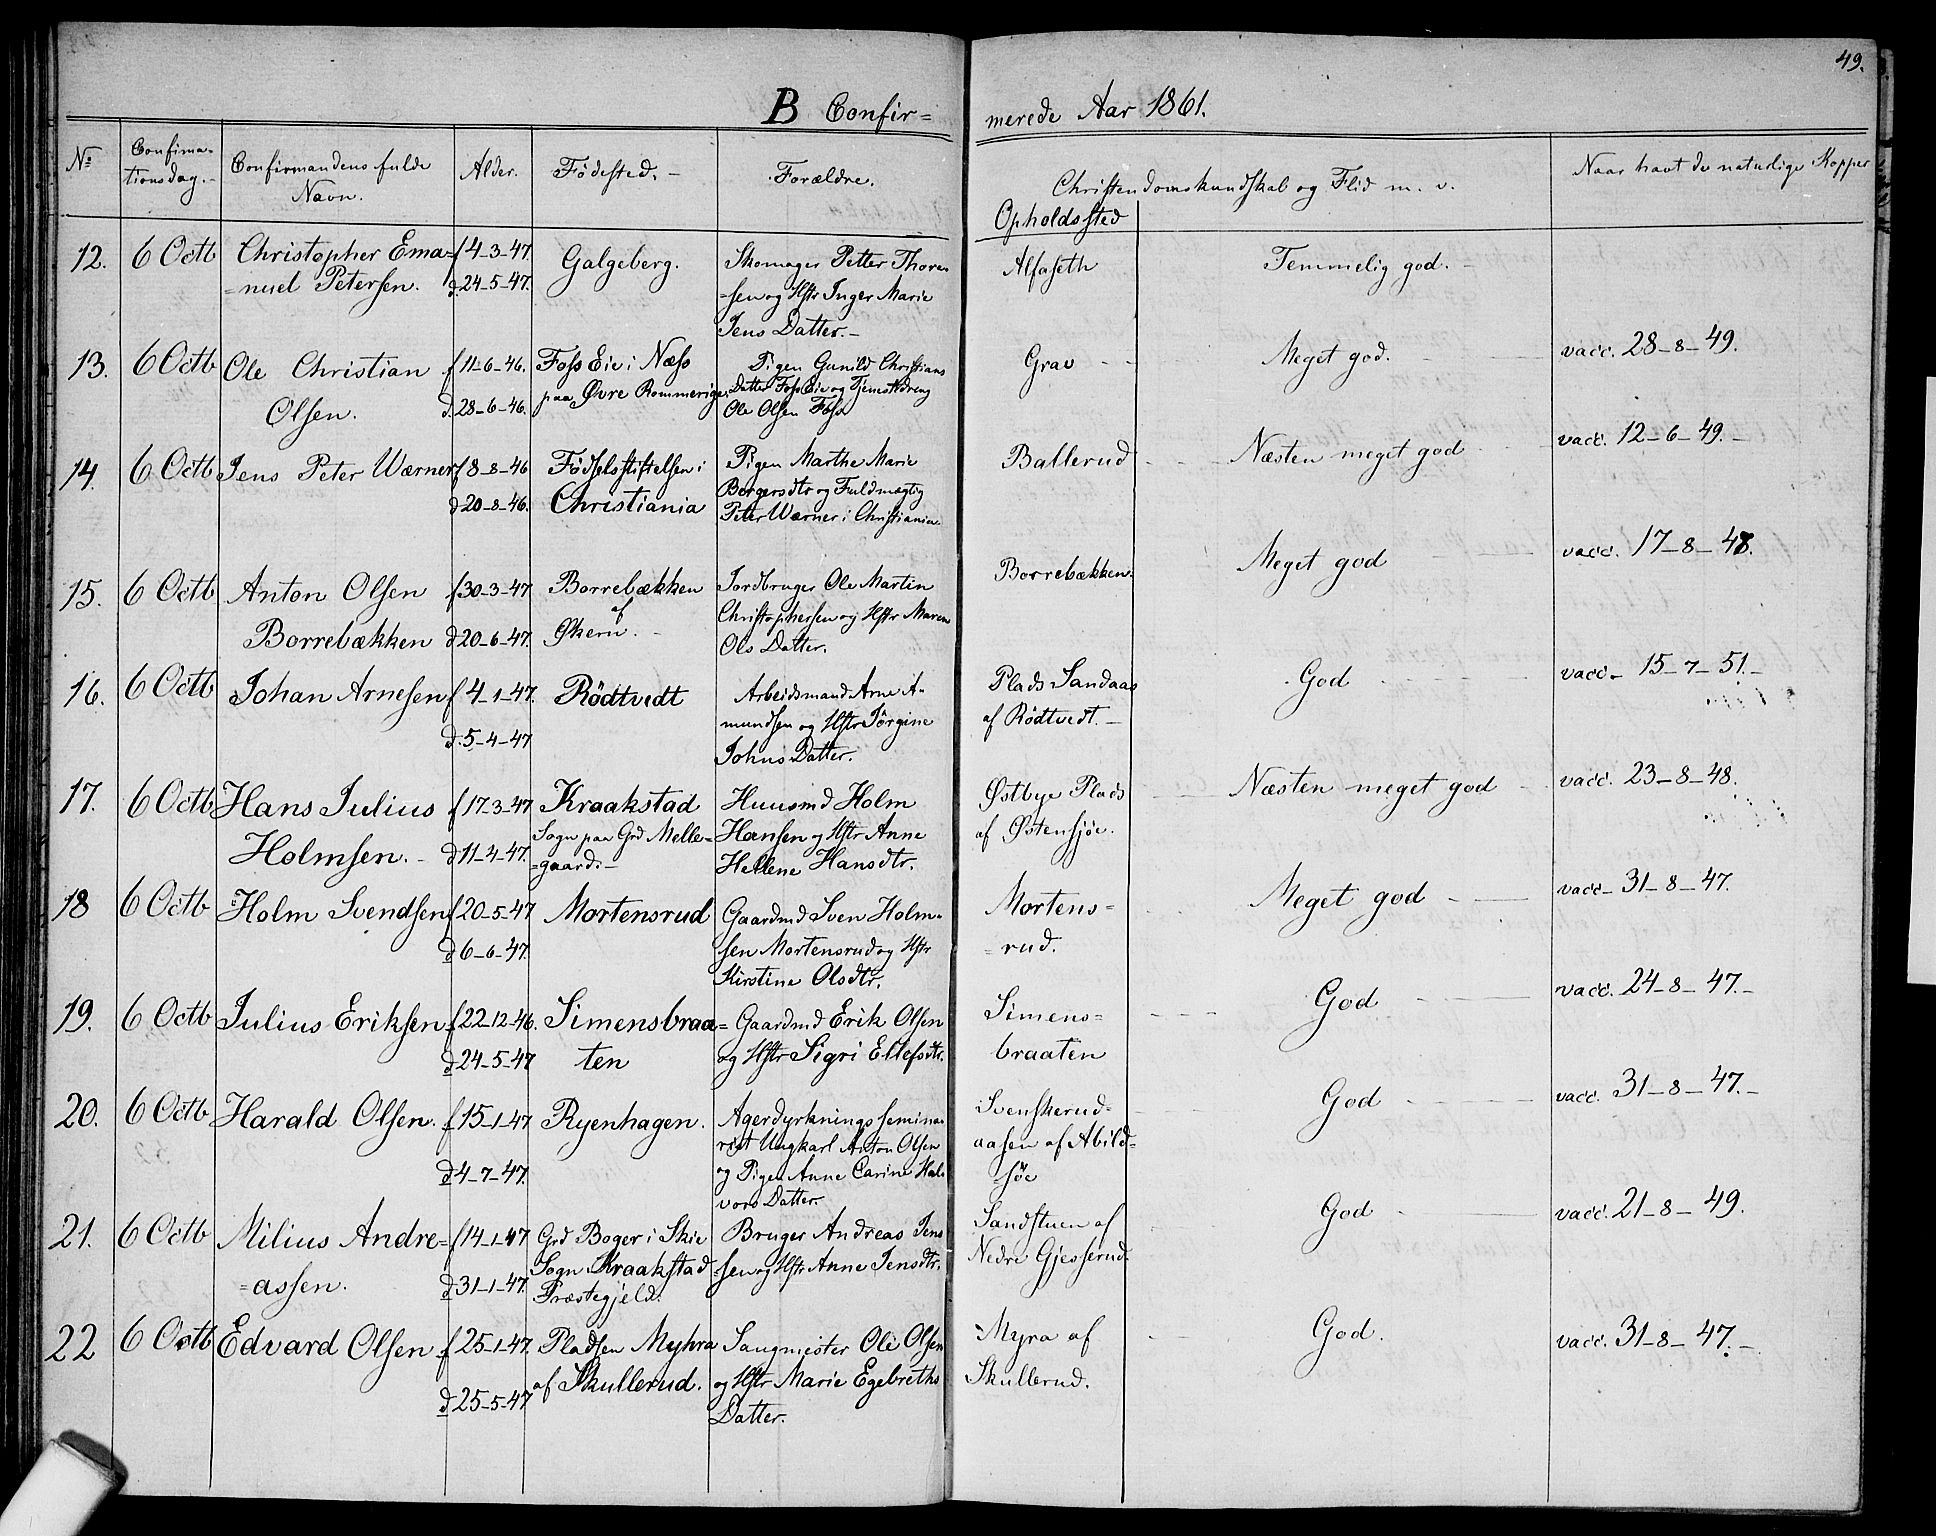 49.
B Confir=
merede Aar 1861.
No
Confirma-
tionsdag.-
Confirmandens fulde
Navn.
Alder.
Fødested.-
Forældre.
Christendomskundskab og Flid m. v.
Opholdssted
Naar havt de naturlige Kopper
12. 6 Octb Christopher Ema= f 4-3-47. Galgeberg. Skomager Petter Thore=
=nuel Petersen. d. 24-5-47. =sen og Hstr Inger Marie
Jens Datter.-
Alfaseth Temmelig god.-
13. 6 Octb Ole Christian f 11-6-46. Foss Eie i Næss Pigen Gunild Christians
Olsen. d. 28-6-46. paa Øvre Rommerige. Datter Foss Eie og Tjenestdreng
Ole Olsen Foss
Grav Meget god. vacc. 28-8-49.
14. 6 Octb Jens Peter Wærner f 8-8-46 Fødselsstiftelsen i Pigen Marthe Marie
d 20-8-46. Christiania Borgersdtr og Fuldmægtig
Peter Wærner i Christiania
Ballerud Næsten meget god vacc. 12-6-49.-
15. 6 Octb Anton Olsen f 30-3-47 Borrebækken Jordbruger Ole Martin
Borrebækken d 20-6-47. af Økern. Christophersen og Hstr Maren
Ols Datter.
Borrebækken. Meget god vacc. 17-8-48.
16. 6 Octb Johan Arnesen f 4-1-47. Rödtvedt Arbeidsmand Arne A-
d. 5-4-47 mundsen og Hstr Jørgine
Johns Datter.
Plads Sandaas
af Rödtvedt.- God vacc- 15-7-51.-
17. 6 Octb Hans Julius f 17-3-47 Kraakstad Huusmd Holm
Holmsen.- d 11-4-47. Sogn paa Grd Melle= Hansen og Hstr Anne
=gaard.- Hellene Hansdtr.
Østbye Plads
af Østensjøe. Næsten meget god vacc. 23-8-48.
18 6 Octb Holm Svendsen f 20-5-47 Mortensrud Gaardmd Sven Holm-
d 6-6-47. sen Mortensrud og Hstr
Kirstine Olsdtr.
Mortens=
=rud. Meget god vacc- 31-8-47.
19. 6 Octb Julius Eriksen f 22-12-46. Simensbraa= Gaardmd Erik Olsen
d 24-5-47 ten og Hstr Sigri Ellefsdtr.
Simens=
braaten God vacc. 24-8-47.-
20. 6 Octb Harald Olsen. f 15-1-47 Ryenhagen. Agerdyrkningssemina-
d 4-7-47. rist Ungkarl Anton Olsen
og Pigen Anne Carine Hal
vors Datter.
Svenskerud-
aasen af Abild=
søe God vacc. 31-8-47.-
21. 6 Octb Milius Andre= f 14-1-47 Grd Boger i Skie Bruger Andreas Jens
=assen. d 31-1-47. Sogn Kraakstad =sen og Hstr Anne Jensdtr.
Præstegjeld.
Sandstuen af
Nedre Gjesserud. God vacc. 21-8-49.
22 6 Octb Edvard Olsen f 25-1-47. Pladsen Myhra Sangmester Ole Olsen
d 25-5-47 af Skullerud. og Hstr Marie Egebreths
Datter.
Myra af
Skullerud. God. vacc. 31-8-47.-